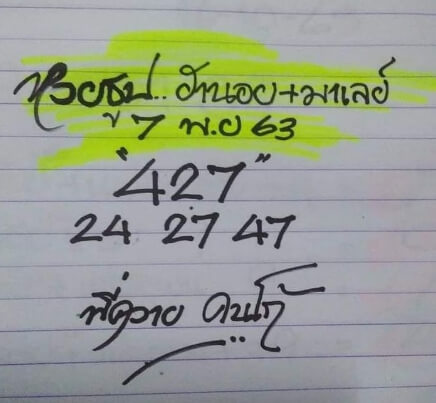 หวยซูป.. ฮานอย+มาเลย์
7 พ.ย 63
"427"
24 27 47
พี่ควาย คนโก้